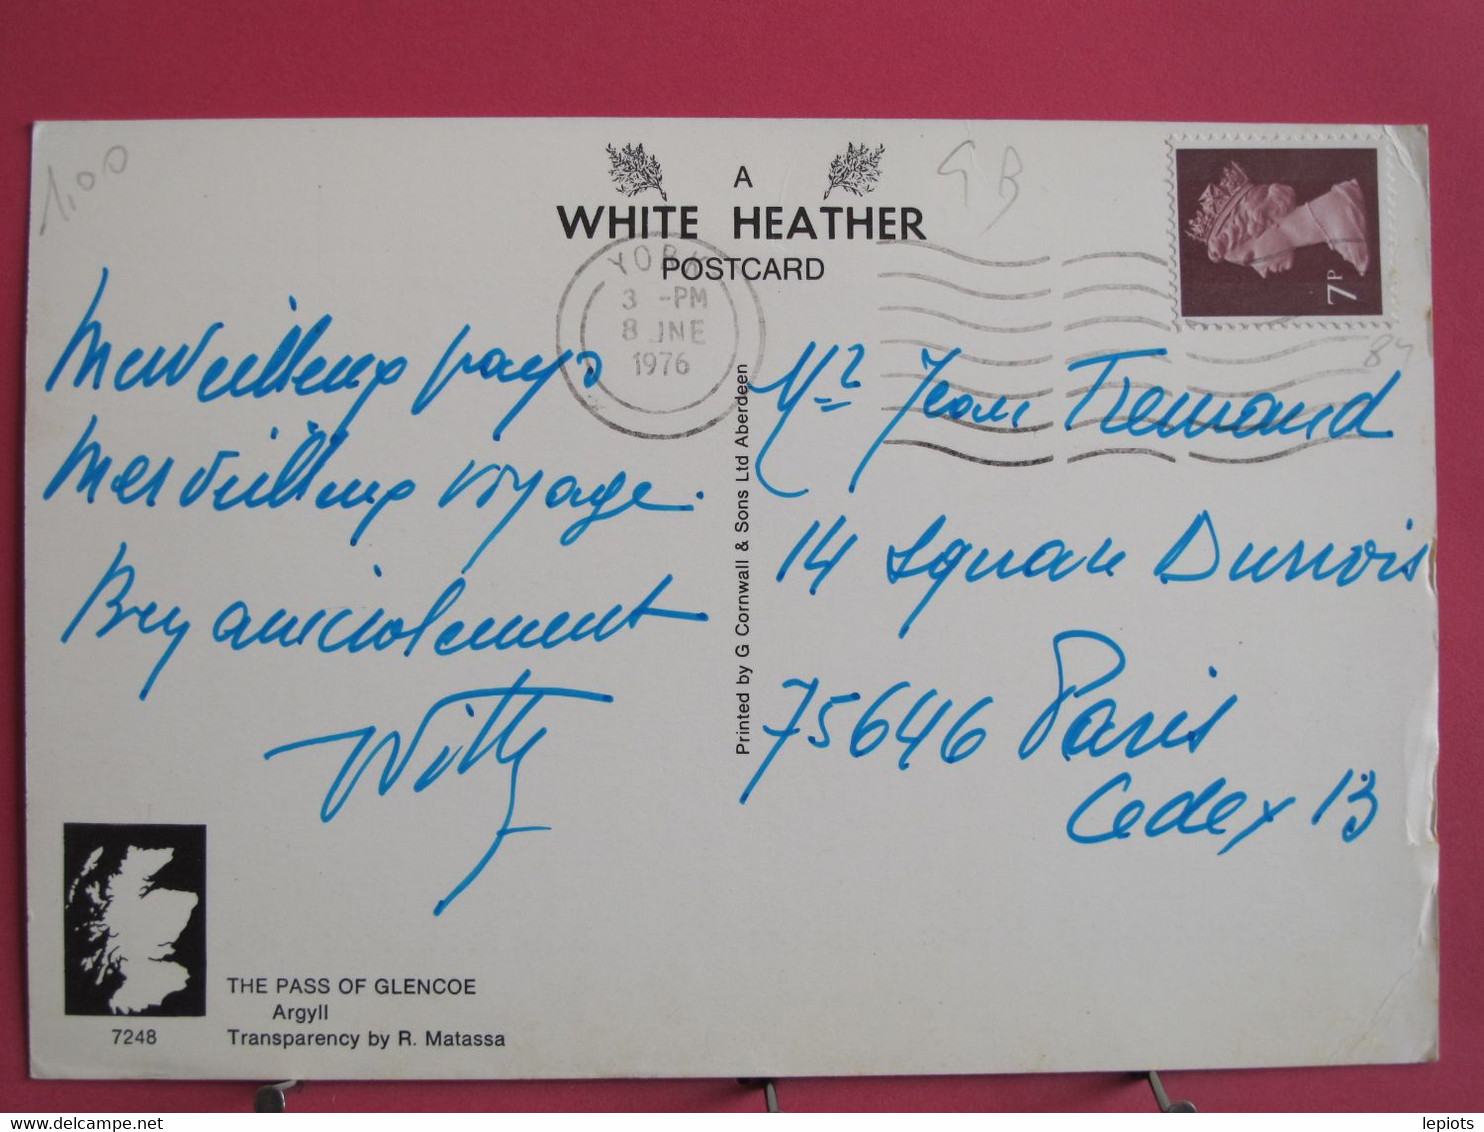 1,00
A
WHITE HEATHER
POSTCARD
G B
7P
84
YORK
3 -PM
8 JNE
1976
Merveilleux pays
Merveilleux voyage.
Bien amicalement
Willy
Printed by G Cornwall & Sons Ltd Aberdeen
Mr Jean Tremand
14 Square Dunois
75646 Paris
Cedex 13
THE PASS OF GLENCOE
Argyll
7248
Transparency by R. Matassa
www.delcampe.net
lepiots